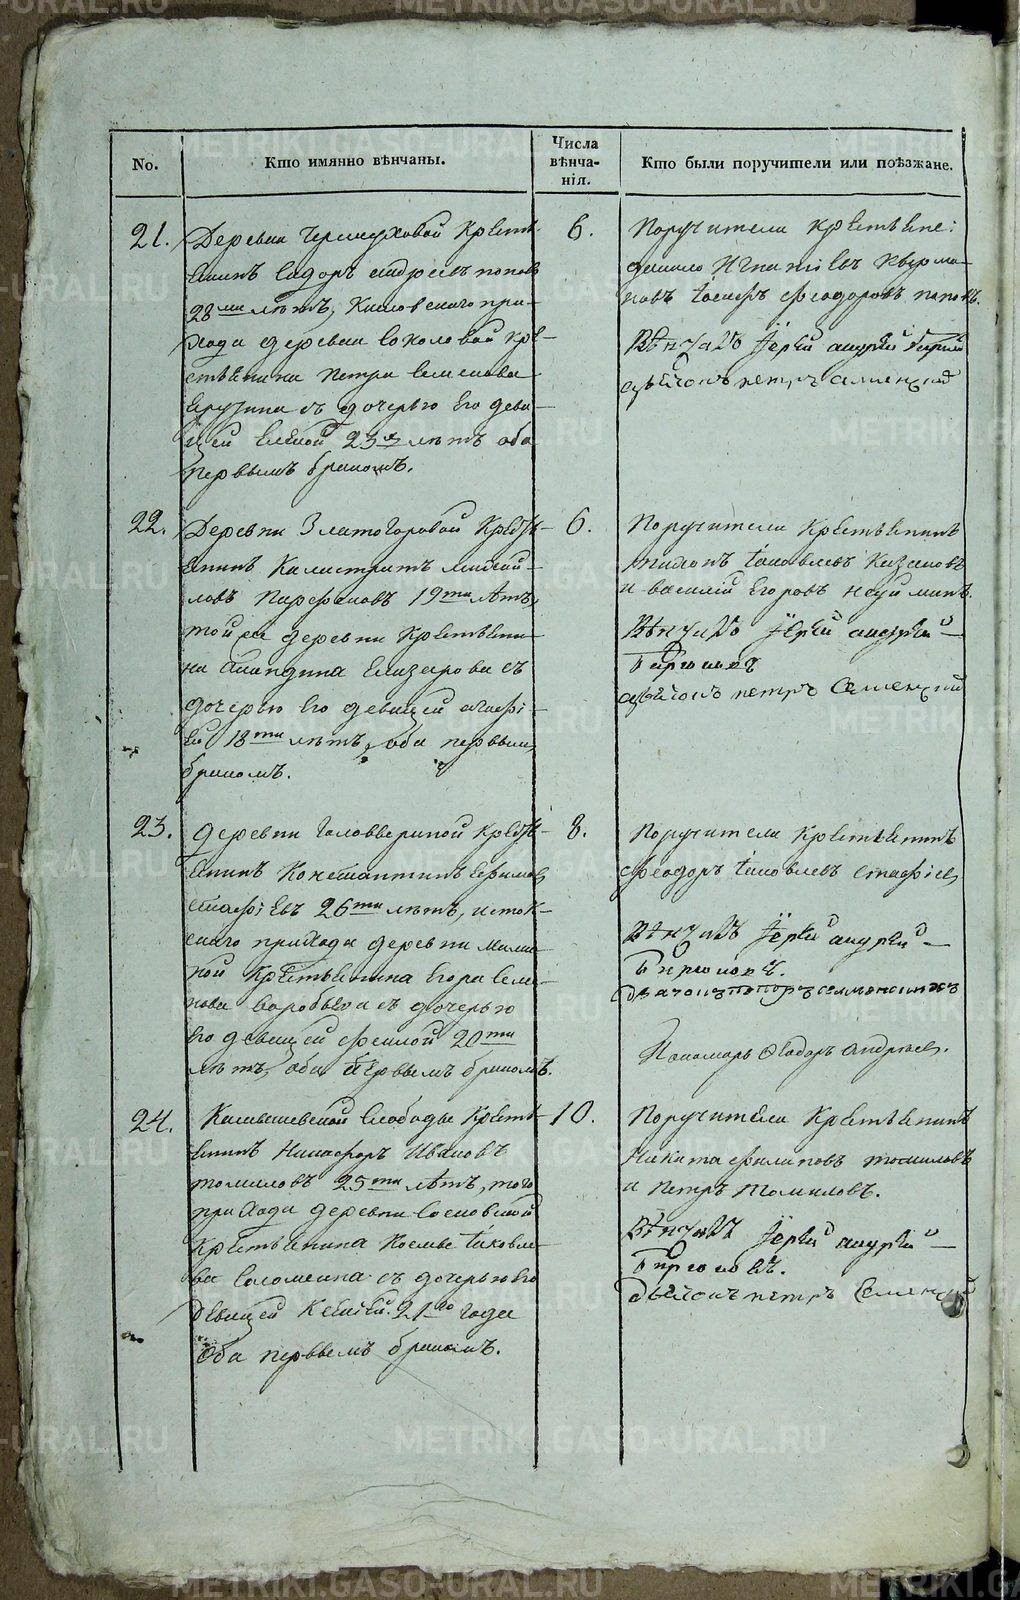 No.
Кто имянно вѣнчаны.
Числа
вѣнча-
нія.
Кто были поручители или поѣзжане.
21.
Деревни Черемуховой Крестя-
нинъ Сидоръ Андреевъ поповъ
28 ми лѣтъ, Кисловскаго при-
хода деревни Соколовой Кре-
стьянина Петра Семенова
съ дочерью Его деви-
цей Еленой 23 х лѣтъ оба
первымъ бракомъ.
6.
Поручители Крестьяне:
Данило Игнатіевъ
Іосифъ Феодоровъ поповъ.
Вѣнчалъ Іерей Андрей
Дьячокъ петръ Селменскій
22.
Деревни Златогоровой Крестья-
нинъ Калистратъ Михай-
ловъ Парфеновъ 19 ти лѣтъ,
той же деревни Крестьяни-
на Елизарова съ
дочерью Его девицей Агафі-
ей 18 ти лѣтъ, оба первымъ
бракомъ.
6.
Поручители Крестьянинъ
Іаковлевъ Казаковъ
и василій Егоровъ Неуйминъ.
Вѣнчалъ Іерей Андрей
Бирюковъ
Дьячокъ петръ Селменскій
23.
Деревни Головыриной Крестья-
нинъ Константинъ Ефимовъ
Стафіевъ 26 ти лѣтъ, исток-
скаго прихода деревни Мами-
ной Крестьянина Егора Семе-
нова Воробьева съ дочерью
его девицей феклой 20 ти
лѣтъ, оба первымъ бракомъ.
8.
Поручители Крестьянинъ
Феодоръ Іаковлевъ Стафіевъ
Вѣнчалъ Іерей Андрей
Бирюковъ.
Дьячокъ петръ Селменскій
Пономарь Андреевъ.
24.
Камышевской Слободы Крестья-
нинъ Никифоръ Ивановъ
томиловъ 25 ти лѣтъ, того
прихода деревни Сосновской
Крестьянина Косьмы Іаковле-
ва Соломеина съ дочерью Его
девицей Ксенией 21 го года
оба первымъ бракомъ.
10.
Поручители Крестьянинъ
Никита филиповъ томиловъ
и Петръ Томиловъ.
Вѣнчалъ Іерей Андрей
Бирюковъ.
Дьячокъ петръ Селменскій
METRIKI.GASO-URAL.RU